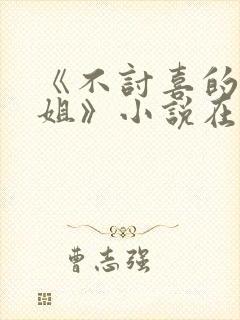 《不討喜的
姐》小說在
曹志强